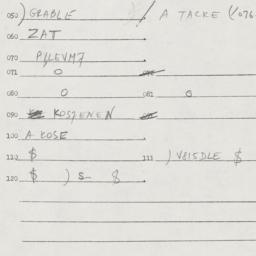 050) GRABLE / A TACKE (/076
060 ZAT
070 PYLEVM7
071 0
080 0 081 0
090 KOSZENEN
100 A KOSE
110 $ 111 ) V815DLE $
120 $ ) S- 8